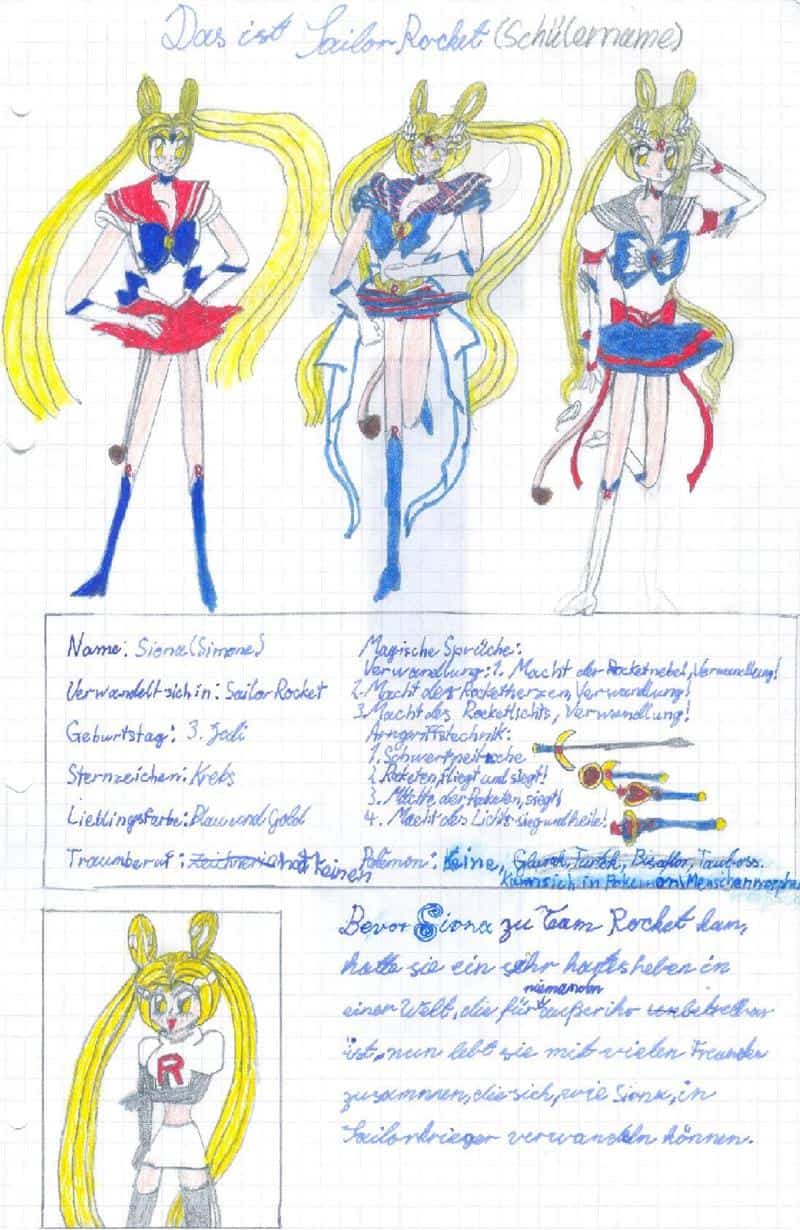 Das ist Sailor Rocket (Schülername)
Name: Siona (Simone)
Verwandelt sich in: Sailor Rocket
Geburtstag: 3. Juli
Sternzeichen: Krebs
Lieblingsfarbe: Blau und Gold
Traumberuf: Zeichnerin hat keinen
Magische Sprüche:
Verwandlung: 1. Macht der Rocketnebel, Verwandlung!
2. Macht des Rocketherzen, Verwandlung!
3. Macht des Rocketlichts, Verwandlung!
Arngriffstechnik:
1. Schwertpeitsche
2. Raketen, fliegt und siegt!
3. Mächte der Raketen, siegt!
4. Macht des Lichts sieg und heile!
Pokemon: Keine, Glurak, Turtok, Bisaflor, Tauboss.
Kann sich in Pokemon\Menschen morphen
R
Bevor Siona zu Team Rocket kam,
hatte sie ein sehr hartes leben in
niemanden
einer Welt, die für außer ihr unbetretbar
ist, nun lebt sie mit vielen Freunden
zusammen, die sich, wie Siona, in
Sailorkrieger verwandeln können.